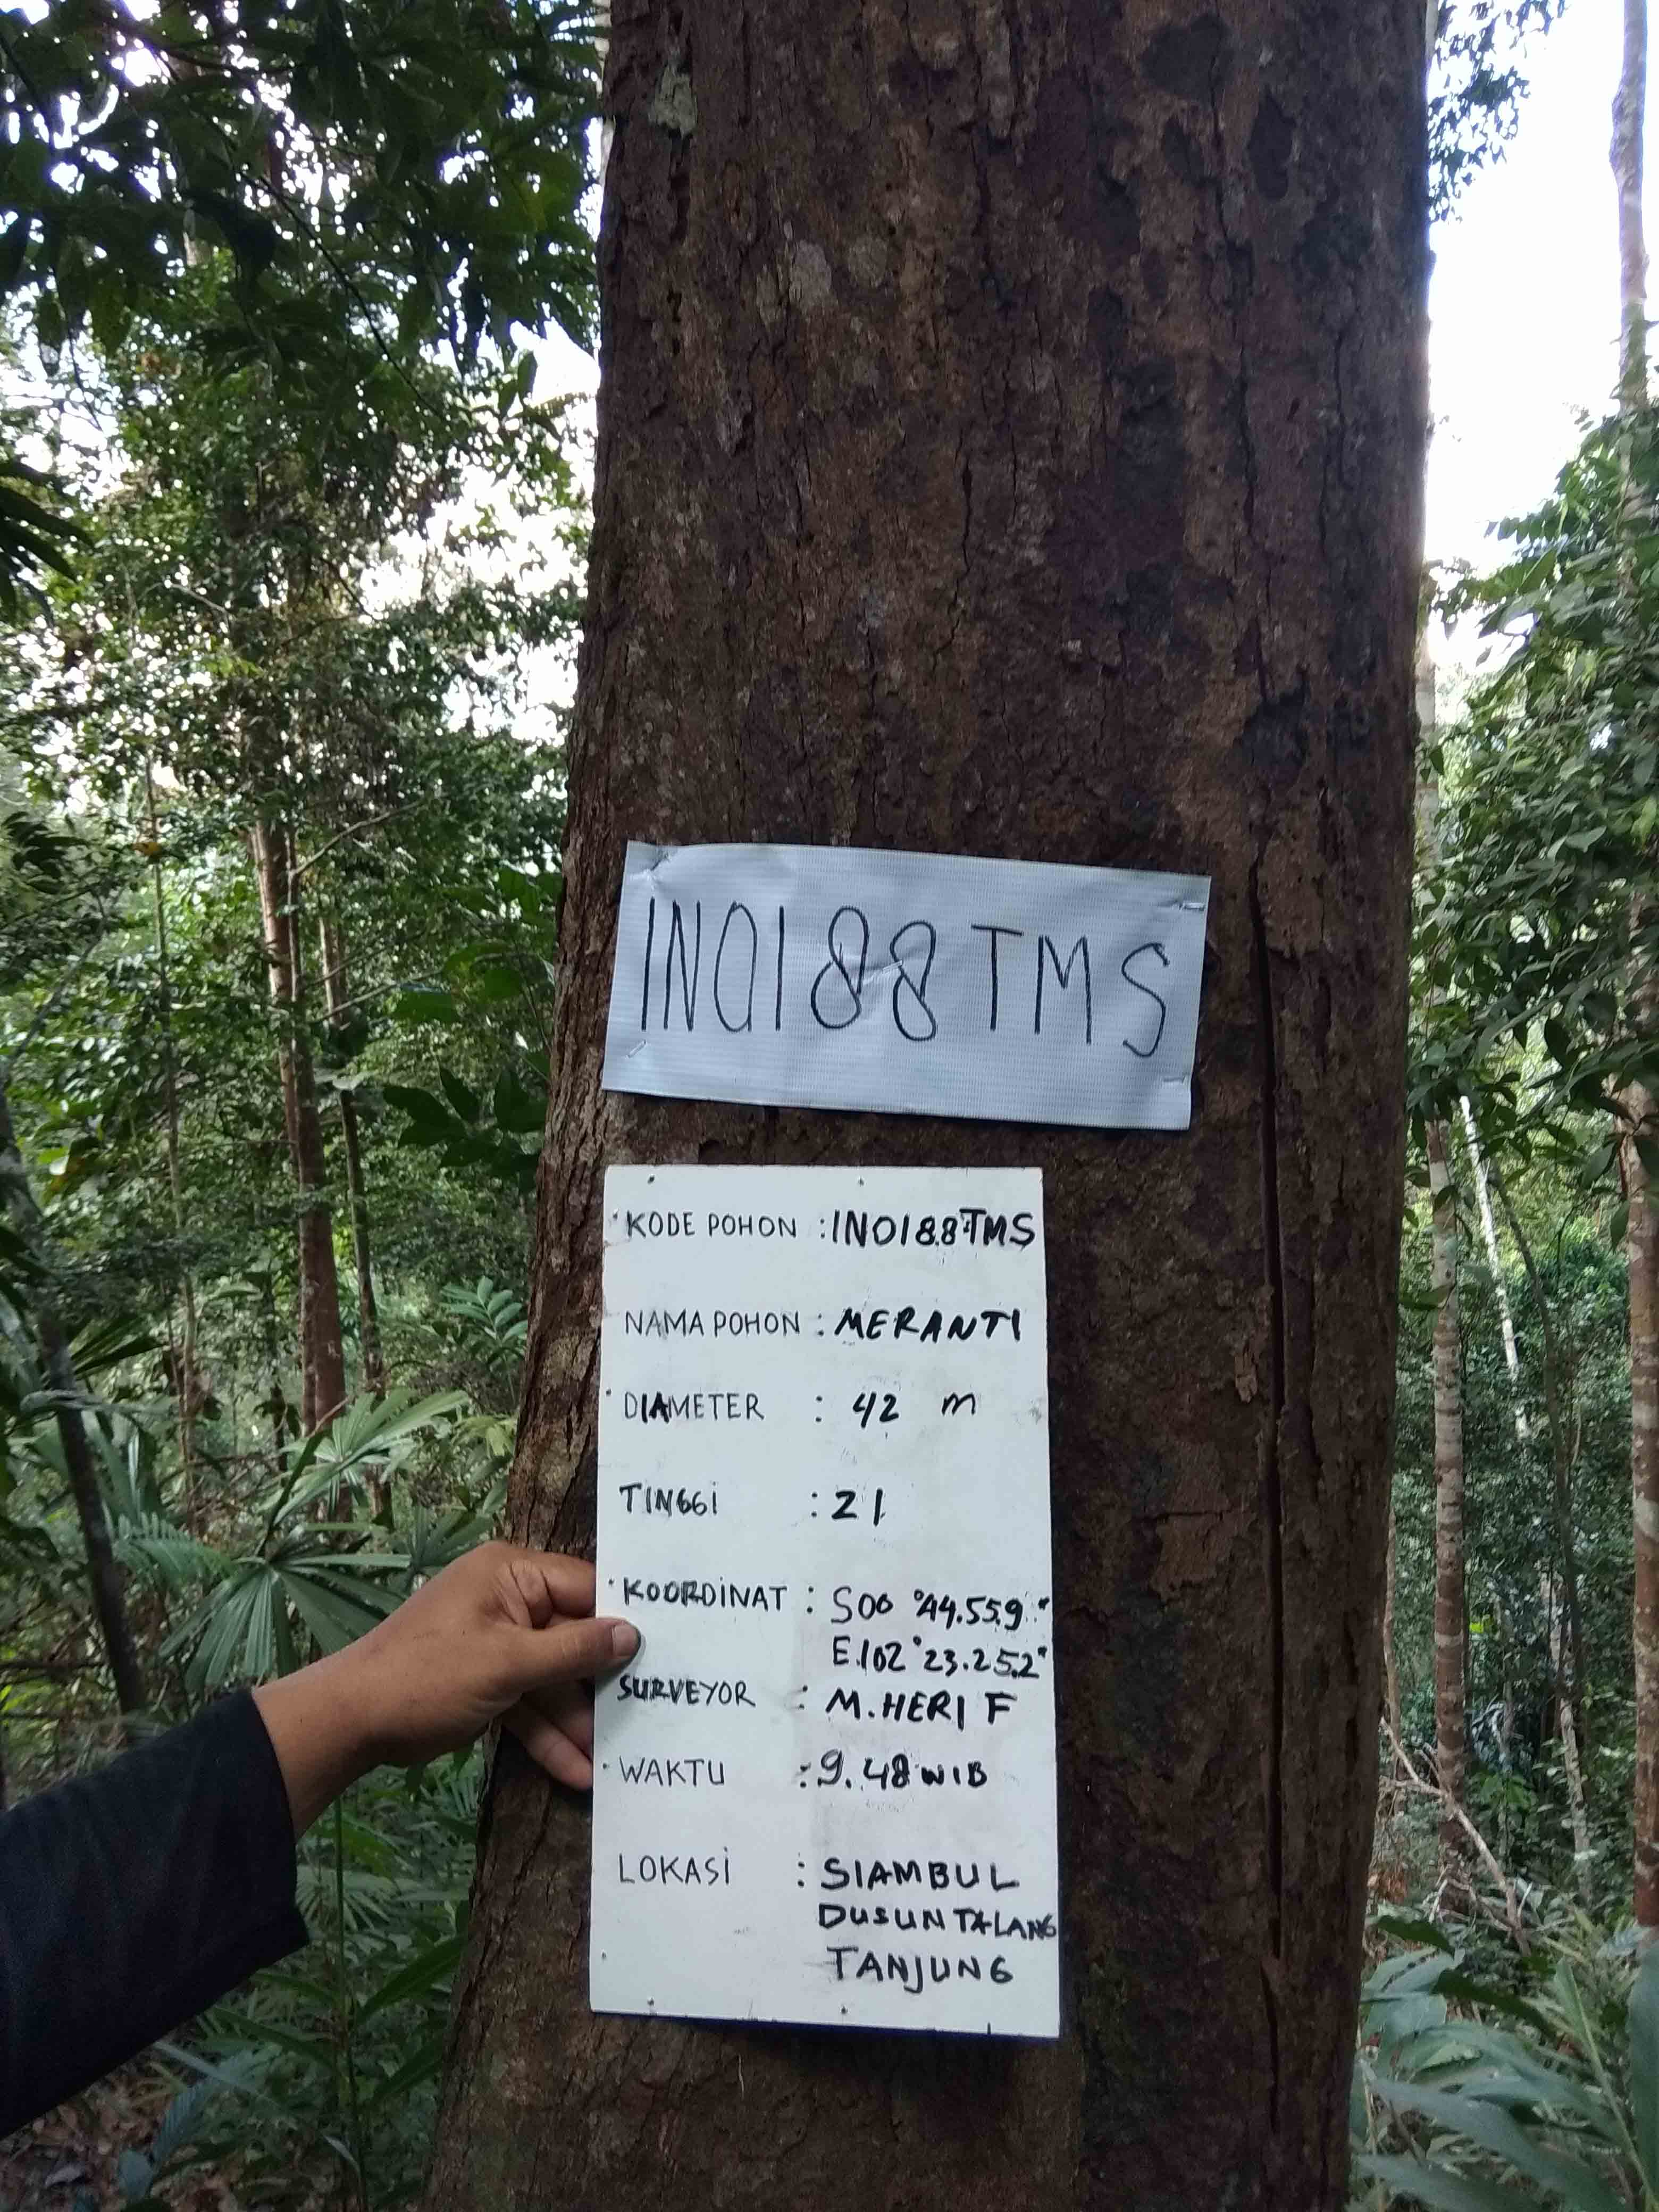 IN0188TMS
KODE POHON : IN0188TMS
NAMA POHON : MERANTI
DIAMETER : 42 m
TINGGI : 21
KOORDINAT : S00 °44.55.9"
E.102°23.25.2"
SURVEYOR : M.HERI F
WAKTU : 9.48 WIB
LOKASI : SIAMBUL
DUSUN TALANG
TANJUNG